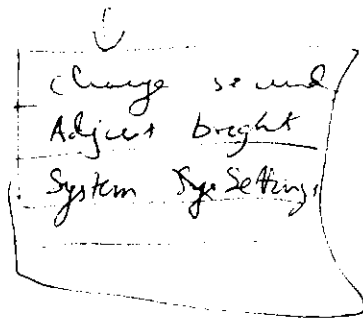 change sound
Adjust bright
System SysSettings